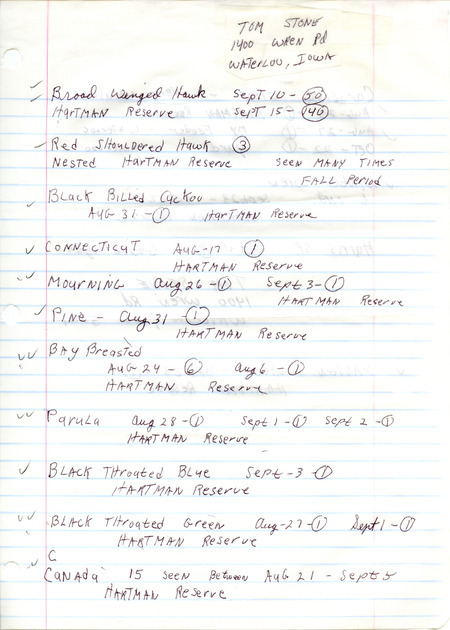 TOM STONE
1400 WREN Rd
WATERLOO, IOWA
Broad Winged Hawk SepT 10 - 50
HARTMAN Reserve SepT 15 - 140
Red Shouldered Hawk 3
Nested HARTMAN Reserve SEEN MANY TIMES
FALL Period
BLACK Billed Cuckoo
AUG 31 - 1 HARTMAN Reserve
CONNECTICUT AUG-17 1
HARTMAN Reserve
MOURNING Aug 26 - 1 Sept 3 - 1
HARTMAN Reserve
PINE - Aug 31 - 1
HARTMAN Reserve
BAY Breasted
AUG 24 - 6 Aug 6 - 1
HARTMAN Reserve
Parula Aug 28 - 1 Sept 1 - 1 Sept 2 - 1
HARTMAN Reserve
BLACK Throated Blue Sept - 3 - 1
HARTMAN Reserve
BLACK THroated Green Aug - 27 - 1 Sept 1 - 1
HARTMAN Reserve
C
CANADA 15 SEEN Between AUG 21 - Sept 5
HARTMAN Reserve